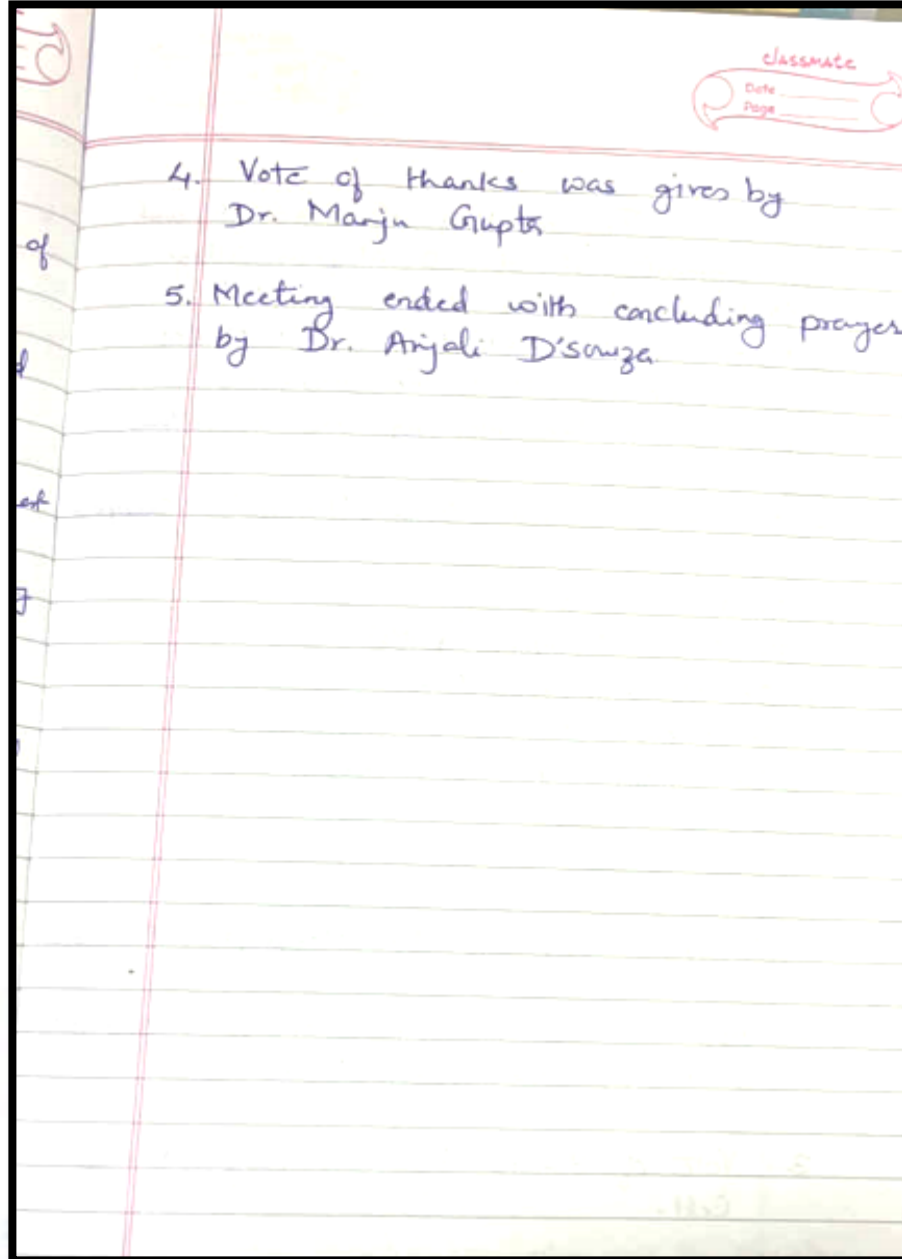 classmate
Date
Page
4. Vote of thanks was given by
Dr. Manju Gupta
5. Meeting ended with concluding prayer
by Dr. Anjali D'souza
of
d
est